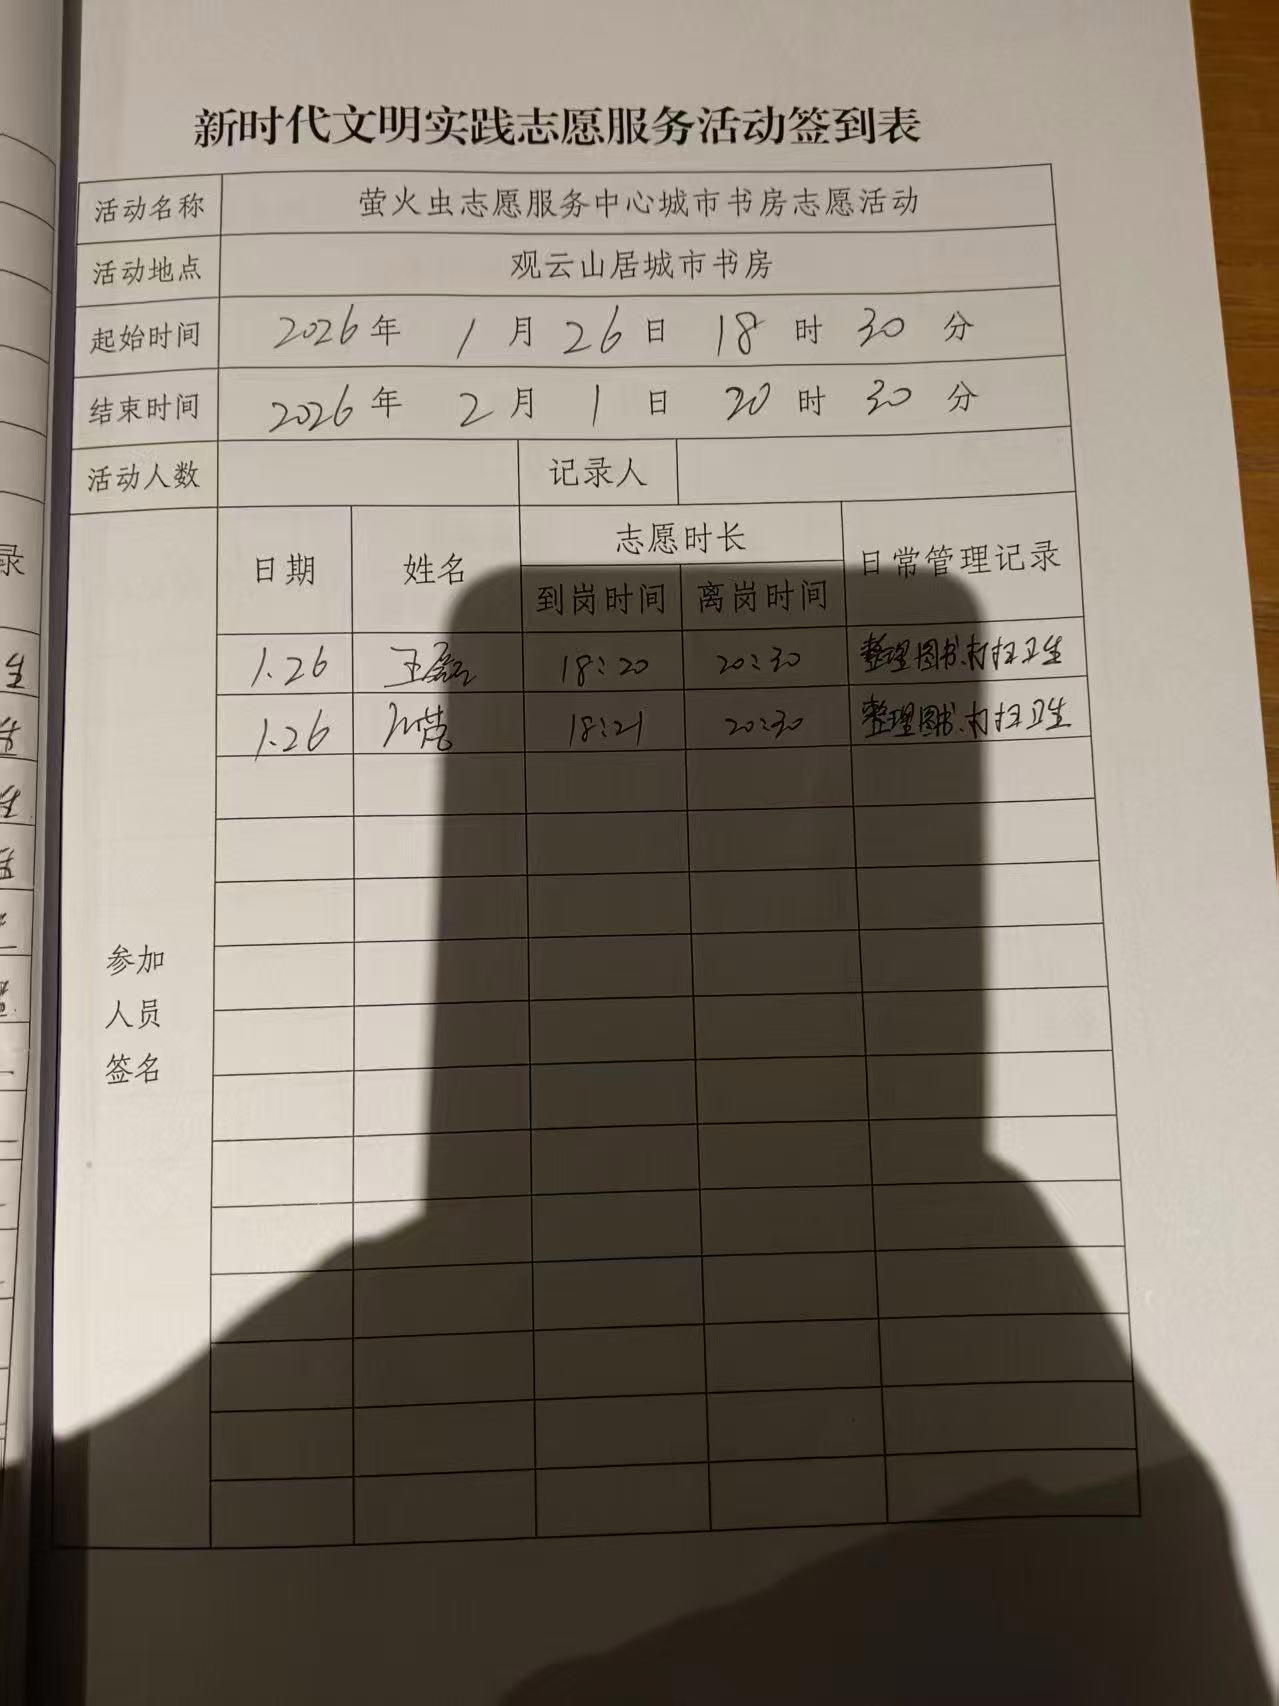 新时代文明实践志愿服务活动签到表
活动名称 萤火虫志愿服务中心城市书房志愿活动
活动地点 观云山居城市书房
起始时间 2026年 1月 26日 18时 30分
结束时间 2026年 2月 1日 20时 30分
活动人数 记录人
日期 姓名 志愿时长 日常管理记录
到岗时间 离岗时间
1.26 王磊 18:20 20:30 整理图书、打扫卫生
1.26 18:21 20:30 整理图书、打扫卫生
参加
人员
签名
录
生